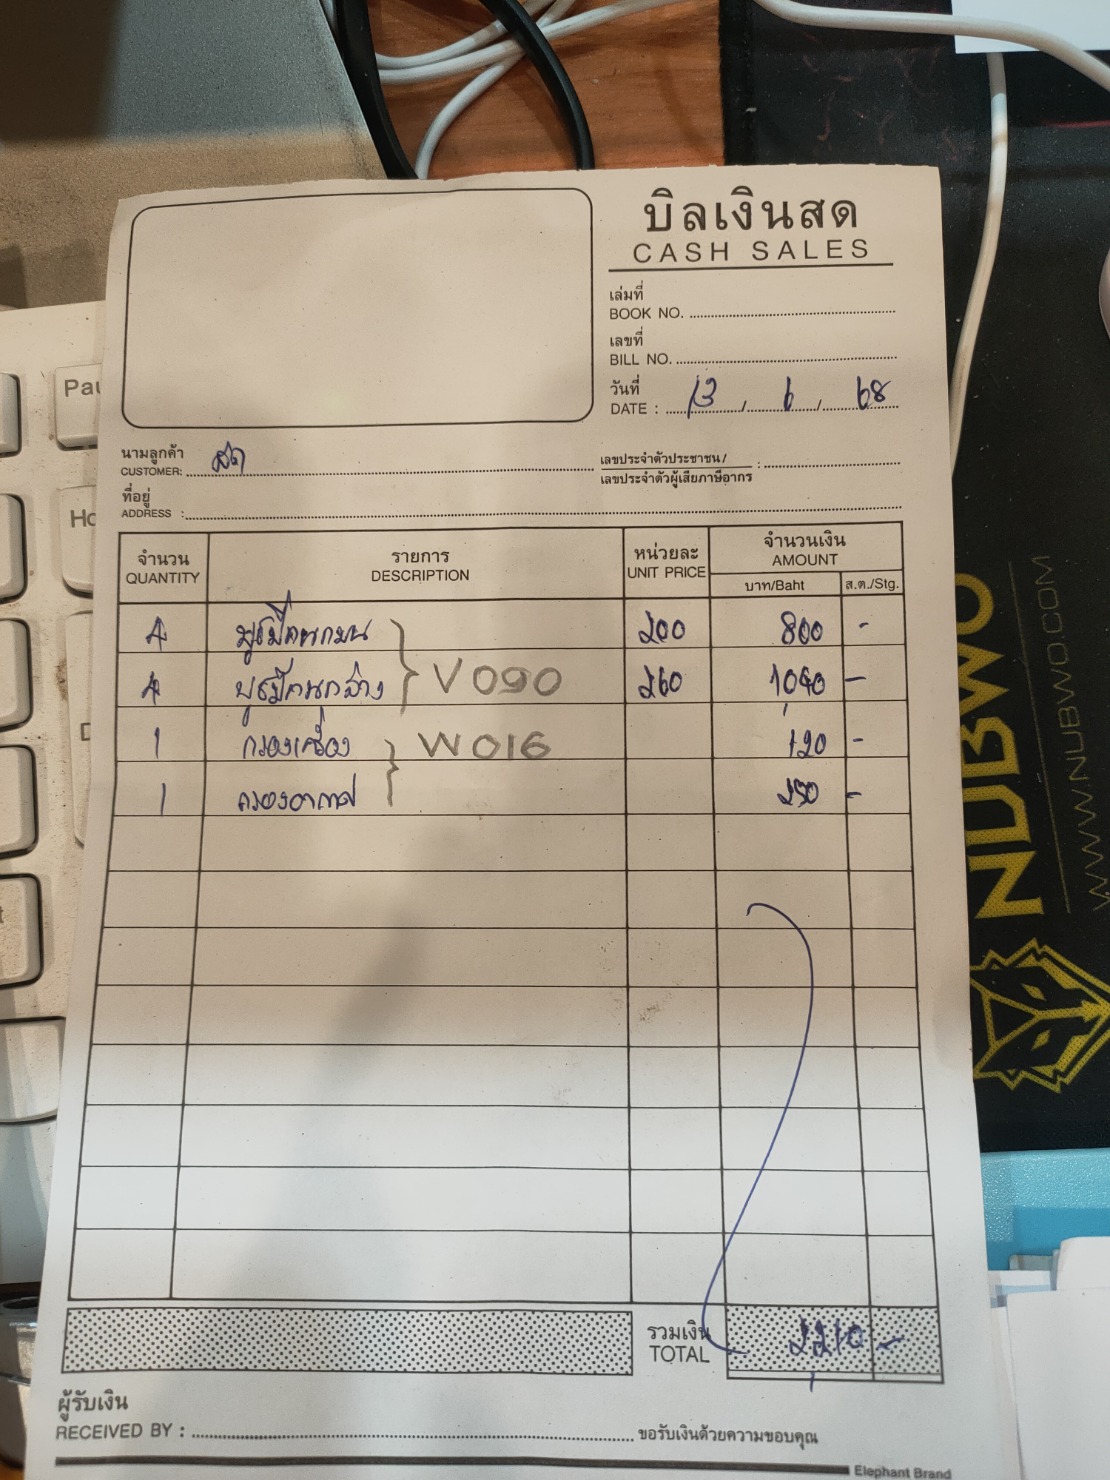 บิลเงินสด
CASH SALES
เล่มที่
BOOK NO.
เลขที่
BILL NO.
วันที่
DATE : 13 / 6 / 68
นามลูกค้า
CUSTOMER: สด
เลขประจำตัวประชาชน/
เลขประจำตัวผู้เสียภาษีอากร :
ที่อยู่
ADDRESS :
จำนวน รายการ หน่วยละ จำนวนเงิน
QUANTITY DESCRIPTION UNIT PRICE AMOUNT
บาท/Baht ส.ต./Stg.
4 บูชปีกนกบน 200 800 -
4 บูชปีกนกล่าง 260 1040 -
V090
1 กรองเครื่อง 120 -
W016
1 กรองอากาศ 250 -
รวมเงิน
TOTAL 2210 -
ผู้รับเงิน
RECEIVED BY : ขอรับเงินด้วยความขอบคุณ
Elephant Brand
Pau
Ho
D
NUBWO
WWW.NUBWO.COM